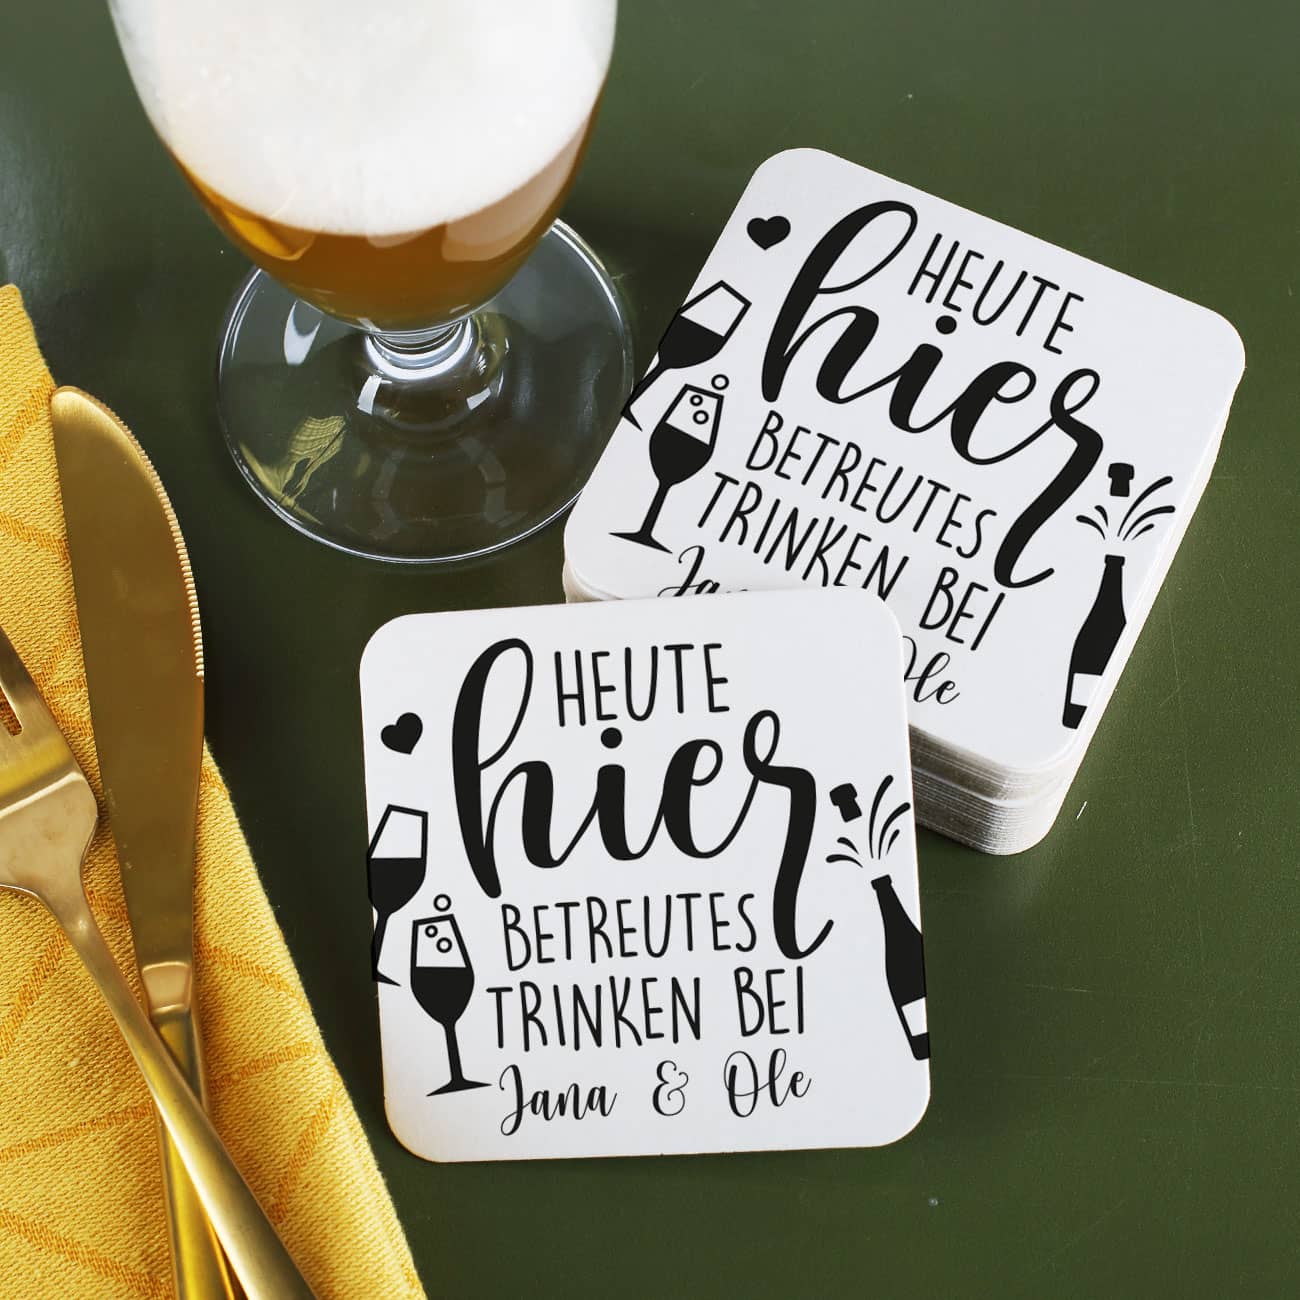 HEUTE
hier
BETREUTES
TRINKEN BEI
Ja
Ole
HEUTE
hier
BETREUTES
TRINKEN BEI
Jana & Ole